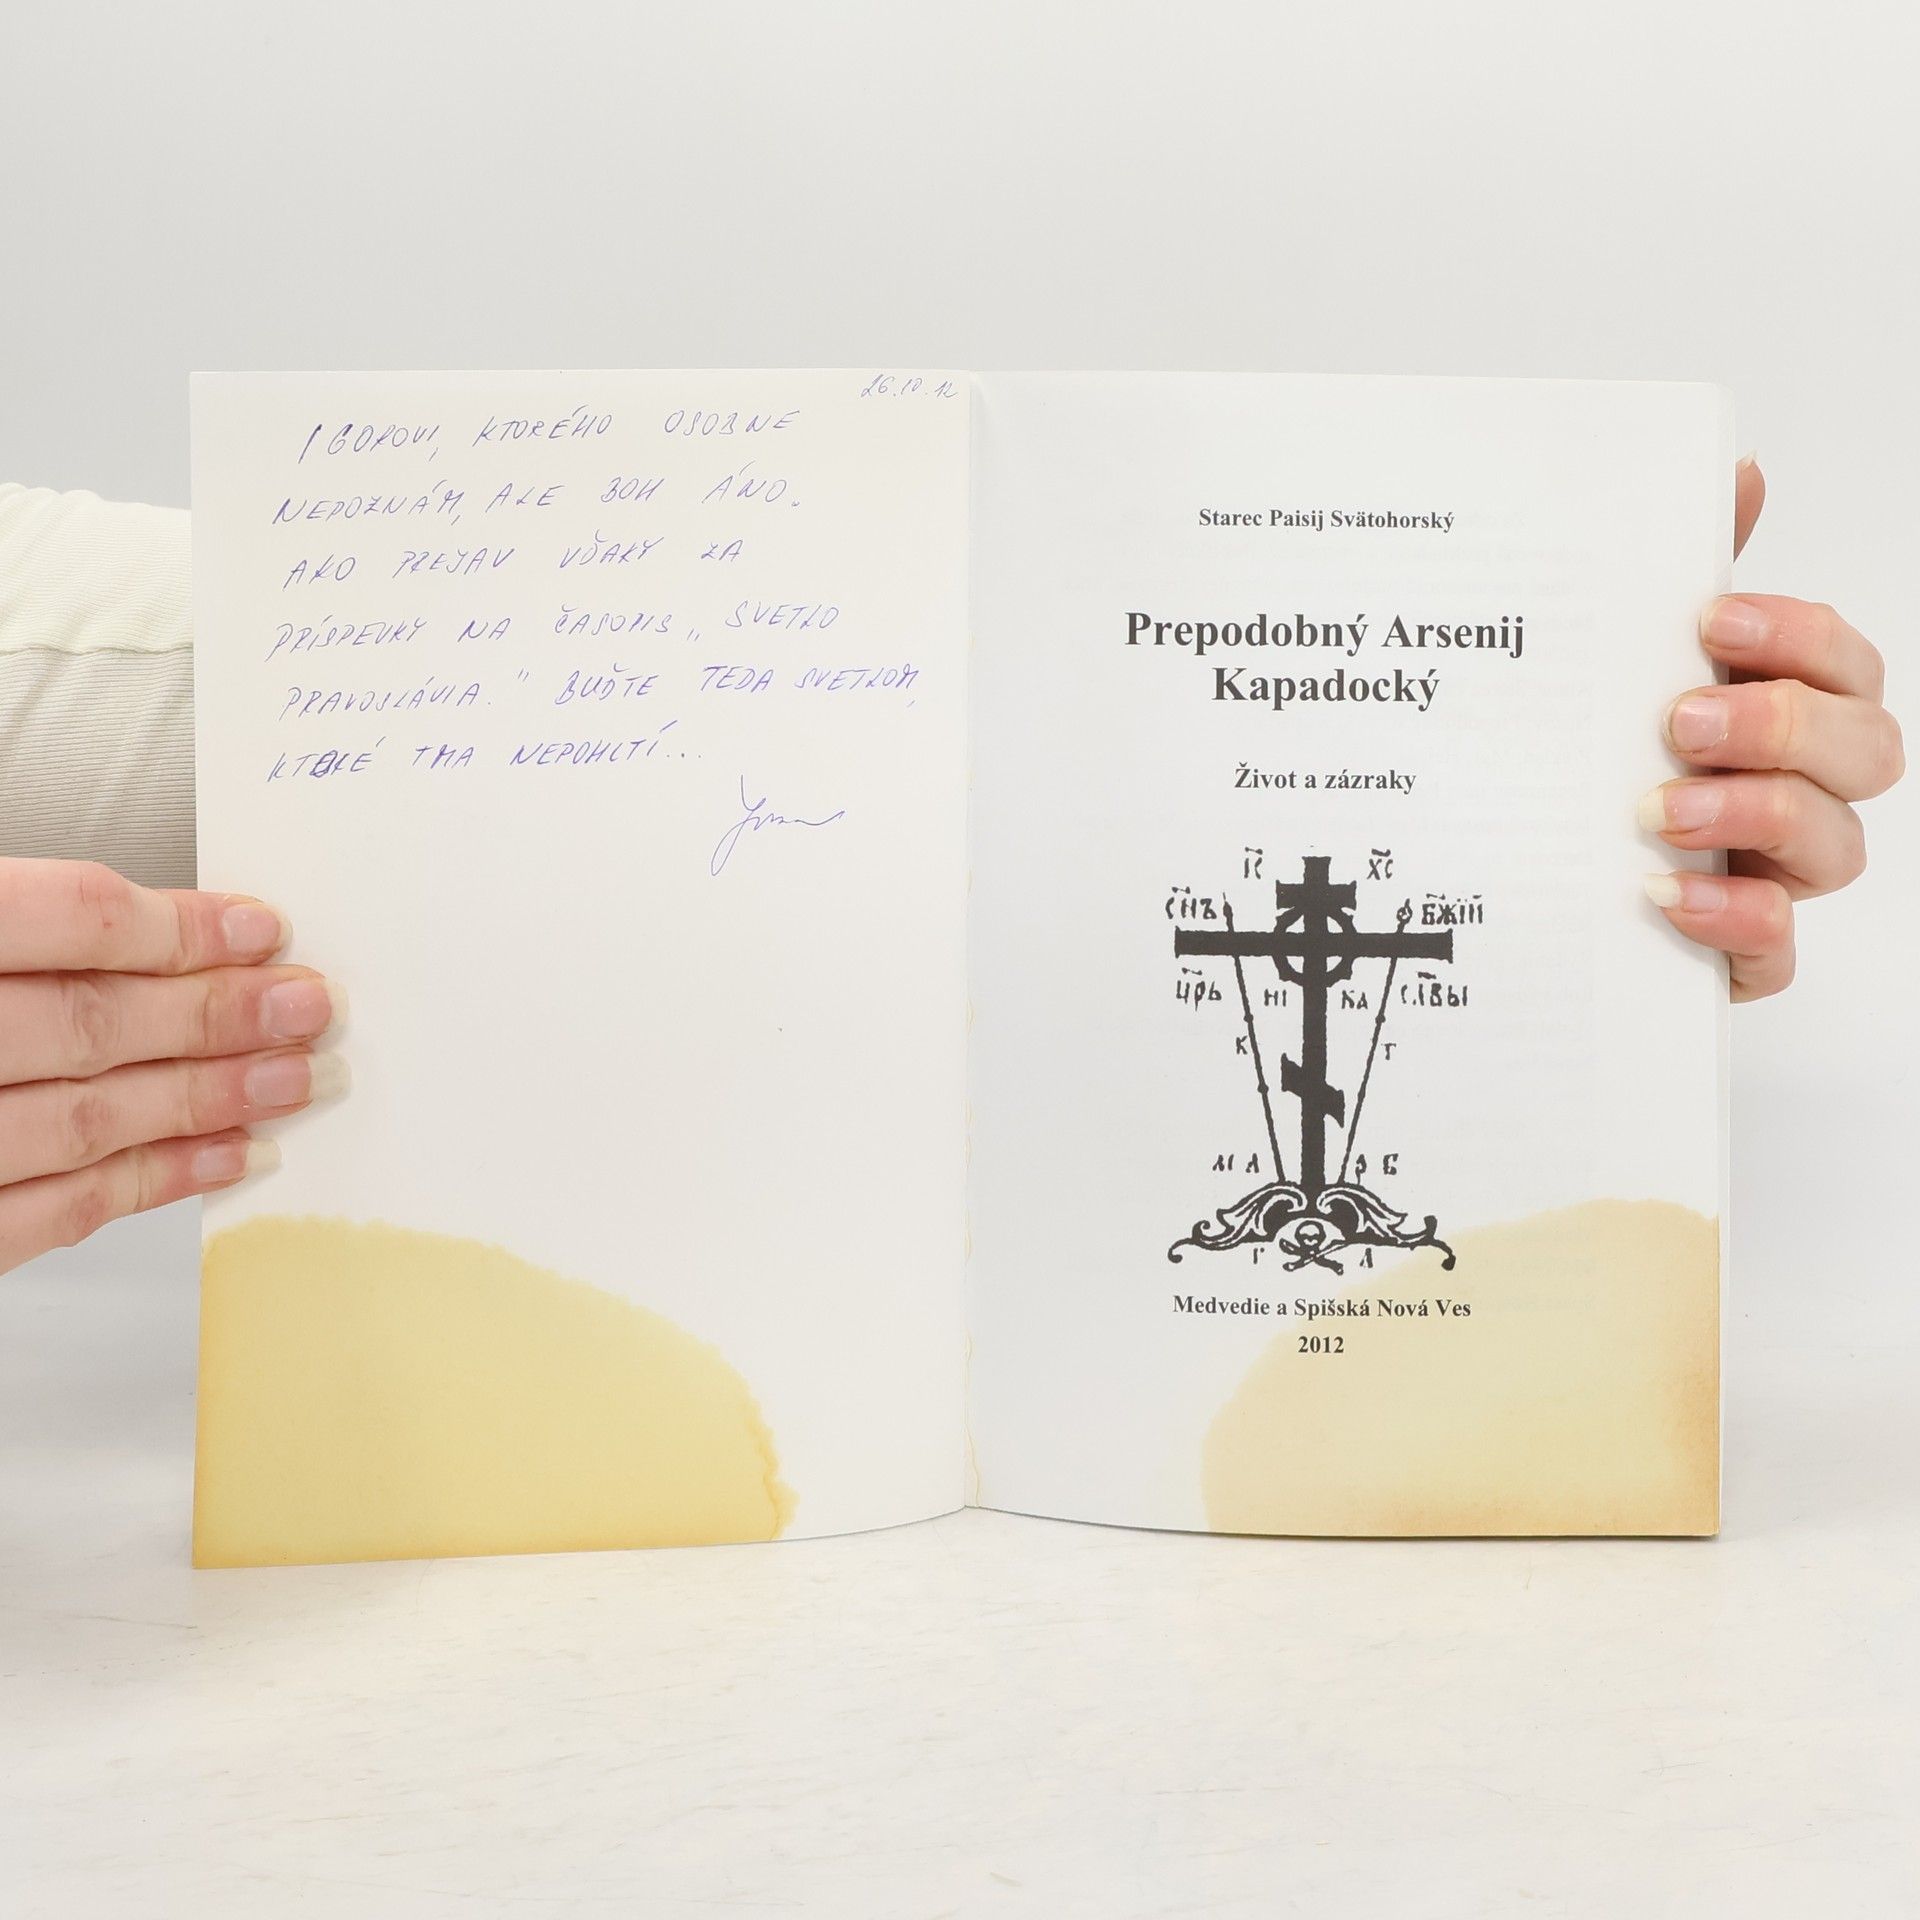 26.10.12
IGOROVI, KTORÉHO OSOBNE
NEPOZNÁM, ALE BOH ÁNO.
AKO PREJAV VĎAKY ZA
PRÍSPEVKY NA ČASOPIS „SVETLO
PRAVOSLÁVIA." BUĎTE TEDA SVETLOM,
KTORÉ TMA NEPOHLTÍ...
Starec Paisij Svätohorský
Prepodobný Arsenij
Kapadocký
Život a zázraky
І҃С Х҃С
С҃НЪ Б҃ЖІЙ
ЦР҃Ь НІ КА СЛ҃ВЫ
К Т
М Л Р Б
Г А
Medvedie a Spišská Nová Ves
2012